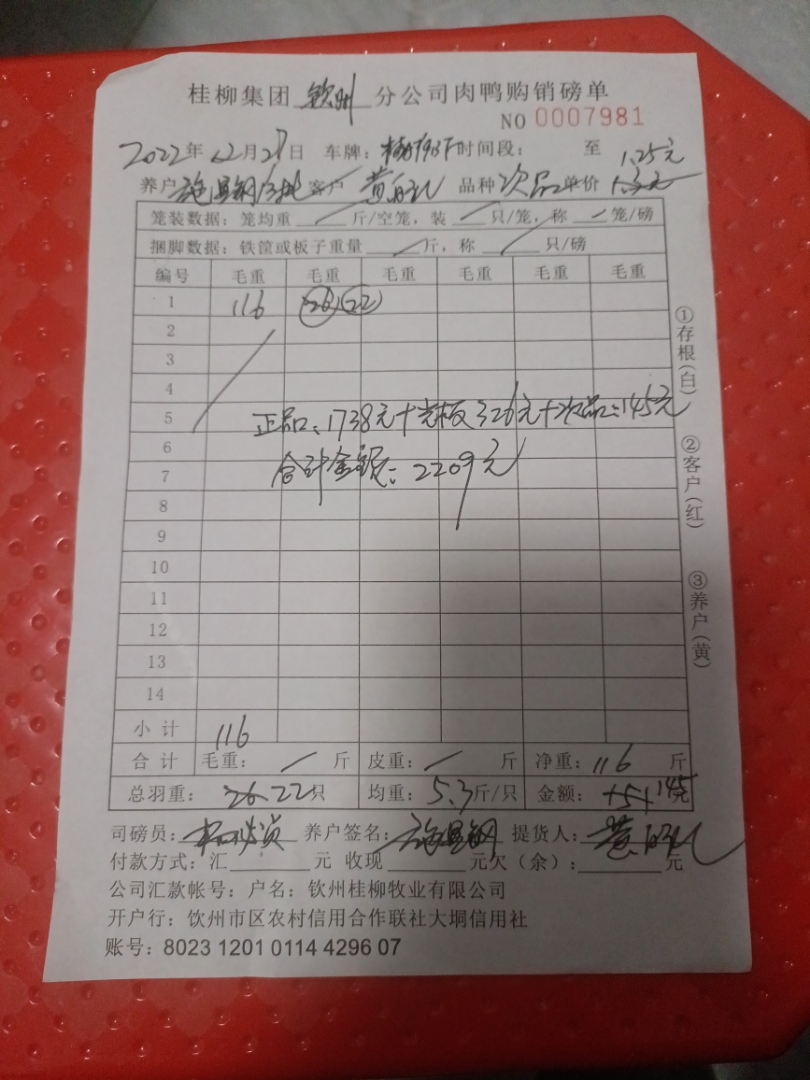 桂柳集团 钦州 分公司肉鸭购销磅单
NO 0007981
2022年12月27日 车牌: 时间段: 至
1.25元
养户 客户 品种 次品 单价
笼装数据: 笼均重 斤/空笼, 装 只/笼, 称 笼/磅
捆脚数据: 铁筐或板子重量 斤, 称 只/磅
编号 毛重 毛重 毛重 毛重 毛重 毛重
1 116 26 22
2
3
4
5 正品: 1738元+光板326元+次品:145元
6
7 合计金额: 2209元
8
9
10
11
12
13
14
小计 116
合计 毛重: 斤 皮重: 斤 净重: 116 斤
总羽重: 26 22只 均重: 5.3斤/只 金额: 151 145元
司磅员: 养户签名: 提货人:
付款方式: 汇 元 收现 元欠(余): 元
公司汇款帐号: 户名: 钦州桂柳牧业有限公司
开户行: 钦州市区农村信用合作联社大垌信用社
账号: 8023 1201 0114 4296 07
①存根(白)
②客户(红)
③养户(黄)